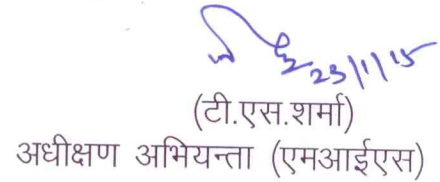 23/1/15
(टी.एस.शर्मा)
अधीक्षण अभियन्ता (एमआईएस)